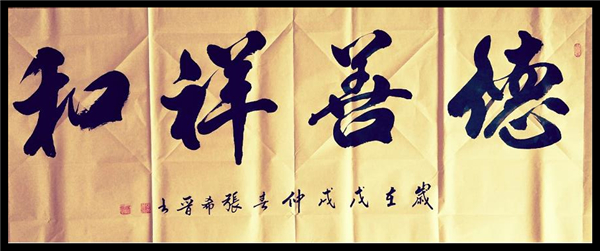 德善祥和
歲在戊戌仲春張希晉書